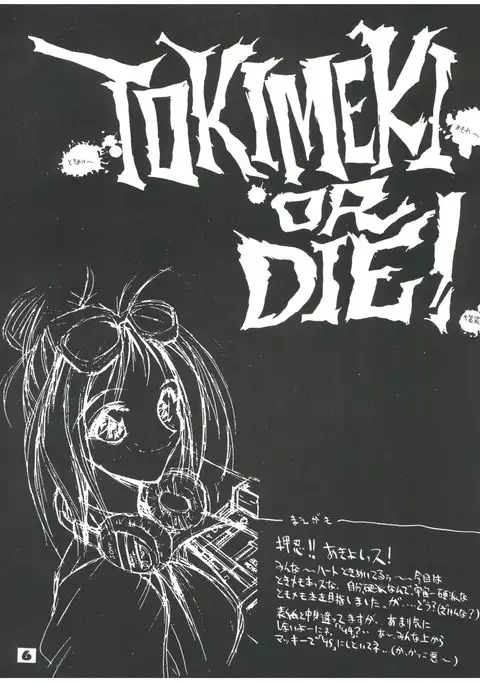 TOKIMEKI
ときめけ〜
めきめれ〜
OR
DIE!
まえがき
押忍!! あきよしッス!
みんな〜ハートときめいてるぅ〜〜今回は
ときメモネッスな。自分硬派なんで、宇宙一硬派な
ときメモ本を目指しました。が…どう?
表紙と中身違ってますが、あまり気に
しないよーにョ。
みんな上から
マッキーで
にしといてネ…(かっこ悪〜)
6